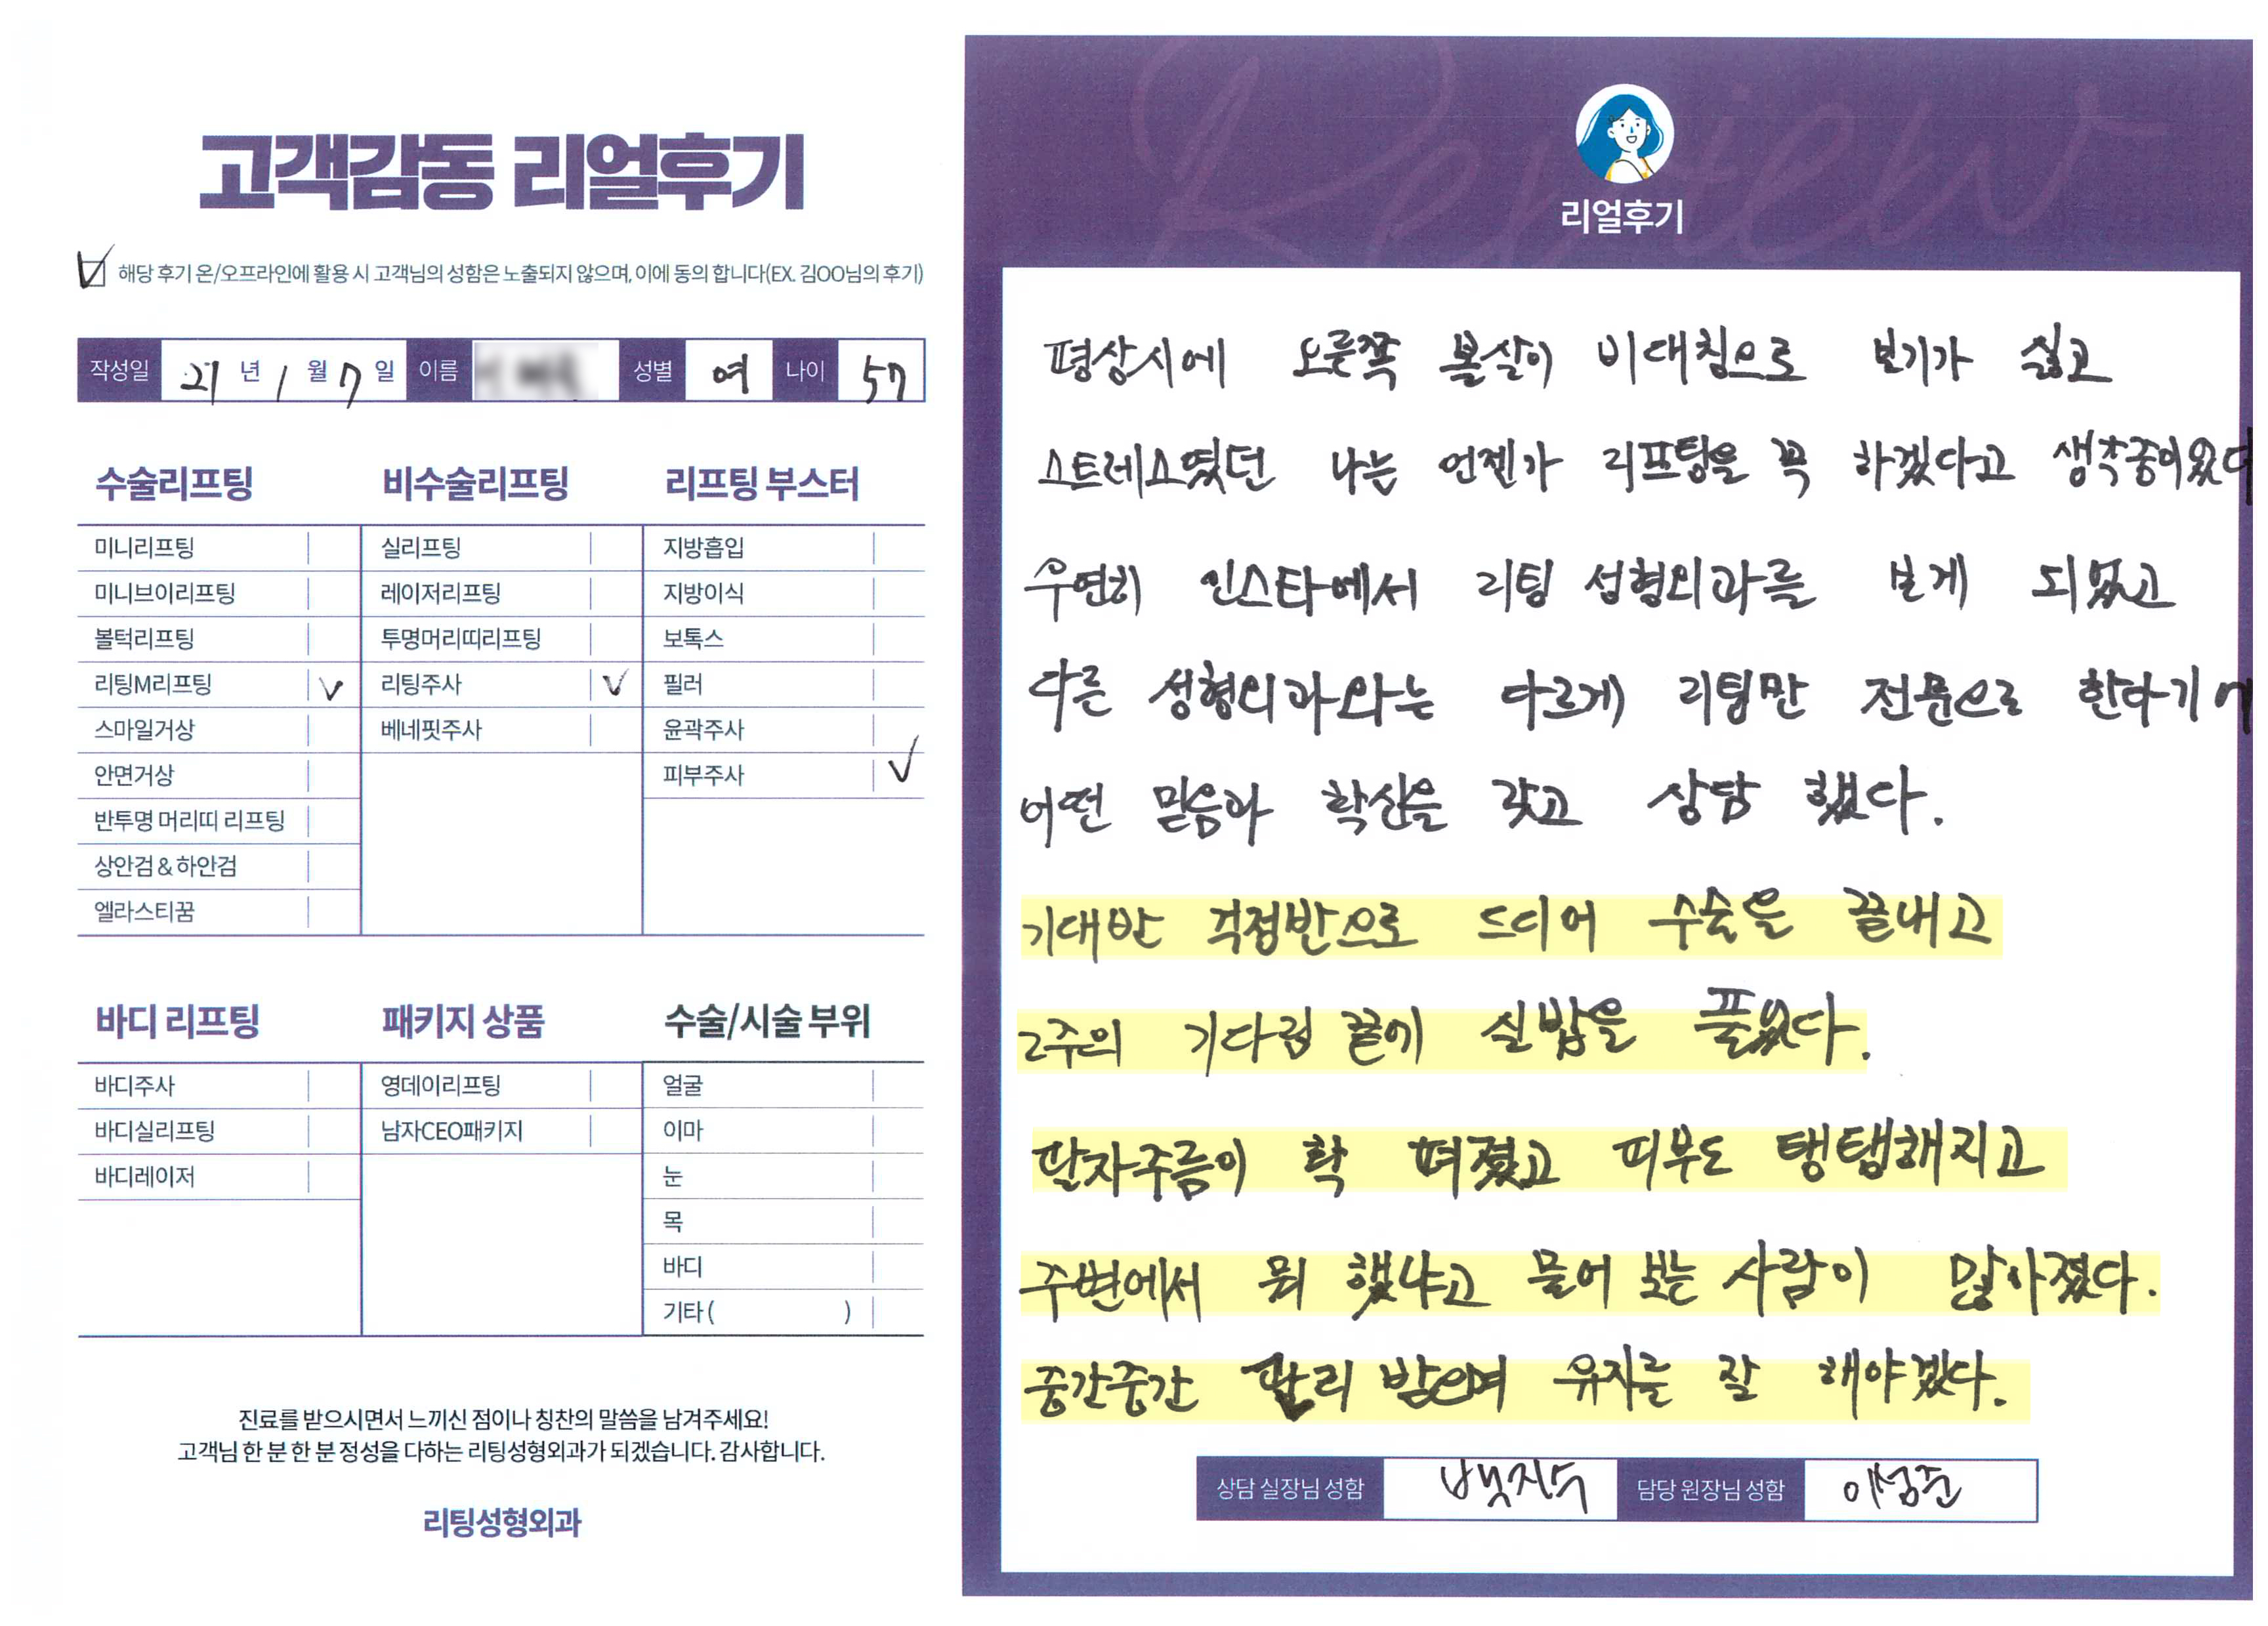 고객감동 리얼후기
해당 후기 온/오프라인에 활용 시 고객님의 성함은 노출되지 않으며, 이에 동의 합니다(EX. 김OO님의 후기)
작성일 21 년 1 월 7 일 이름 성별 여 나이 57
수술리프팅
미니리프팅
미니브이리프팅
볼턱리프팅
리팅M리프팅 V
스마일거상
안면거상
반투명 머리띠 리프팅
상안검 & 하안검
엘라스티꿈
비수술리프팅
실리프팅
레이저리프팅
투명머리띠리프팅
리팅주사 V
베네핏주사
리프팅 부스터
지방흡입
지방이식
보톡스
필러
윤곽주사
피부주사 V
바디 리프팅
바디주사
바디실리프팅
바디레이저
패키지 상품
영데이리프팅
남자CEO패키지
수술/시술 부위
얼굴
이마
눈
목
바디
기타 ( )
진료를 받으시면서 느끼신 점이나 칭찬의 말씀을 남겨주세요!
고객님 한 분 한 분 정성을 다하는 리팅성형외과가 되겠습니다. 감사합니다.
리팅성형외과
Review
리얼후기
평상시에 오른쪽 볼살이 비대칭으로 보기가 싫고
스트레스였던 나는 언젠가 리프팅을 꼭 하겠다고 생각중이었다
우연히 인스타에서 리팅 성형외과를 보게 되었고
다른 성형외과와는 다르게 리팅만 전문으로 한다기에
어떤 믿음과 확신을 갖고 상담 했다.
기대반 걱정반으로 드디어 수술을 끝내고
2주의 기다림 끝에 실밥을 풀었다.
팔자주름이 확 펴졌고 피부도 탱탱해지고
주변에서 뭐 했냐고 물어 보는 사람이 많아졌다.
중간중간 관리 받으며 유지를 잘 해야겠다.
상담 실장님 성함 백지수 담당 원장님 성함 이성준